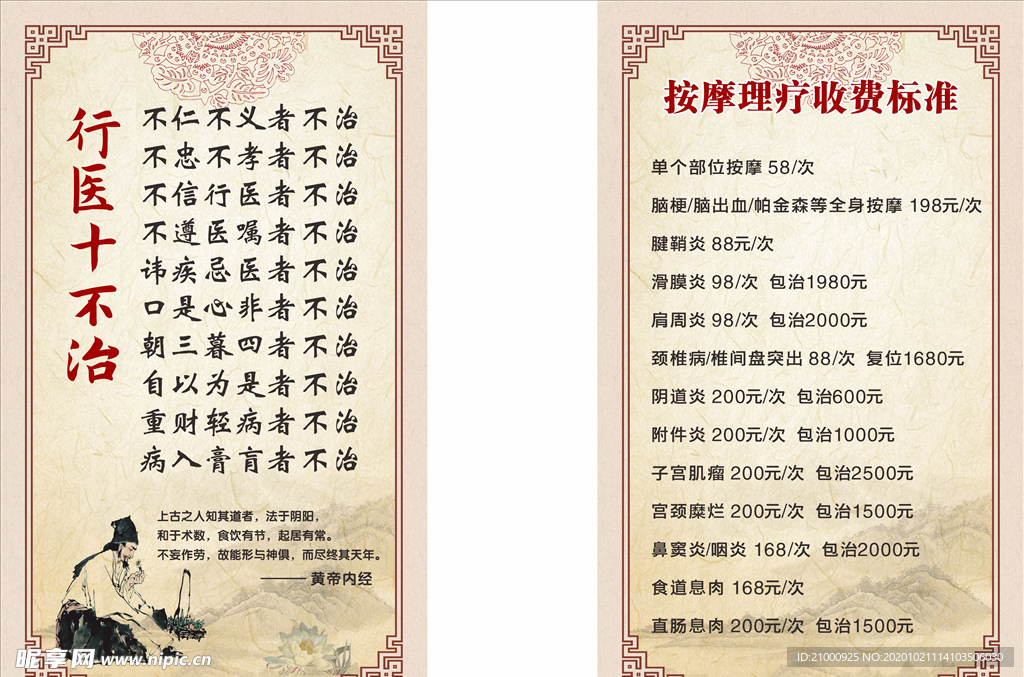 行医十不治
不仁不义者不治
不忠不孝者不治
不信行医者不治
不遵医嘱者不治
讳疾忌医者不治
口是心非者不治
朝三暮四者不治
自以为是者不治
重财轻病者不治
病入膏肓者不治
上古之人知其道者，法于阴阳，
和于术数，食饮有节，起居有常。
不妄作劳，故能形与神俱，而尽终其天年。
——— 黄帝内经
按摩理疗收费标准
单个部位按摩 58/次
脑梗/脑出血/帕金森等全身按摩 198元/次
腱鞘炎 88元/次
滑膜炎 98/次 包治1980元
肩周炎 98/次 包治2000元
颈椎病/椎间盘突出 88/次 复位1680元
阴道炎 200元/次 包治600元
附件炎 200元/次 包治1000元
子宫肌瘤 200元/次 包治2500元
宫颈糜烂 200元/次 包治1500元
鼻窦炎/咽炎 168/次 包治2000元
食道息肉 168元/次
直肠息肉 200元/次 包治1500元
昵享网 www.nipic.cn
ID:21000925 NO:20201021114103506030